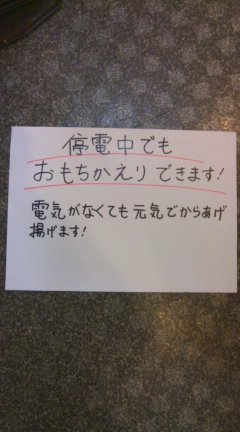 停電中でも
おもちかえりできます!
電気がなくても元気でからあげ
揚げます!